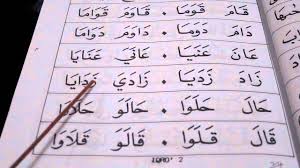 قَامَ قَوَمَا . قَاوَمَ قَوَامَا
دَامَ دَوَمَا . دَاوَمَ دَوَامَا
عَانَ عَنَيَا . عَانَيَ عَنَايَا
زَادَ زَدَيَا . زَادَيَ زَدَايَا
حَالَ حَلَوَا . حَالَوَ حَلَاوَا
قَالَ قَلَوَا . قَالَوَ قَلَاوَا
IQRO' 2